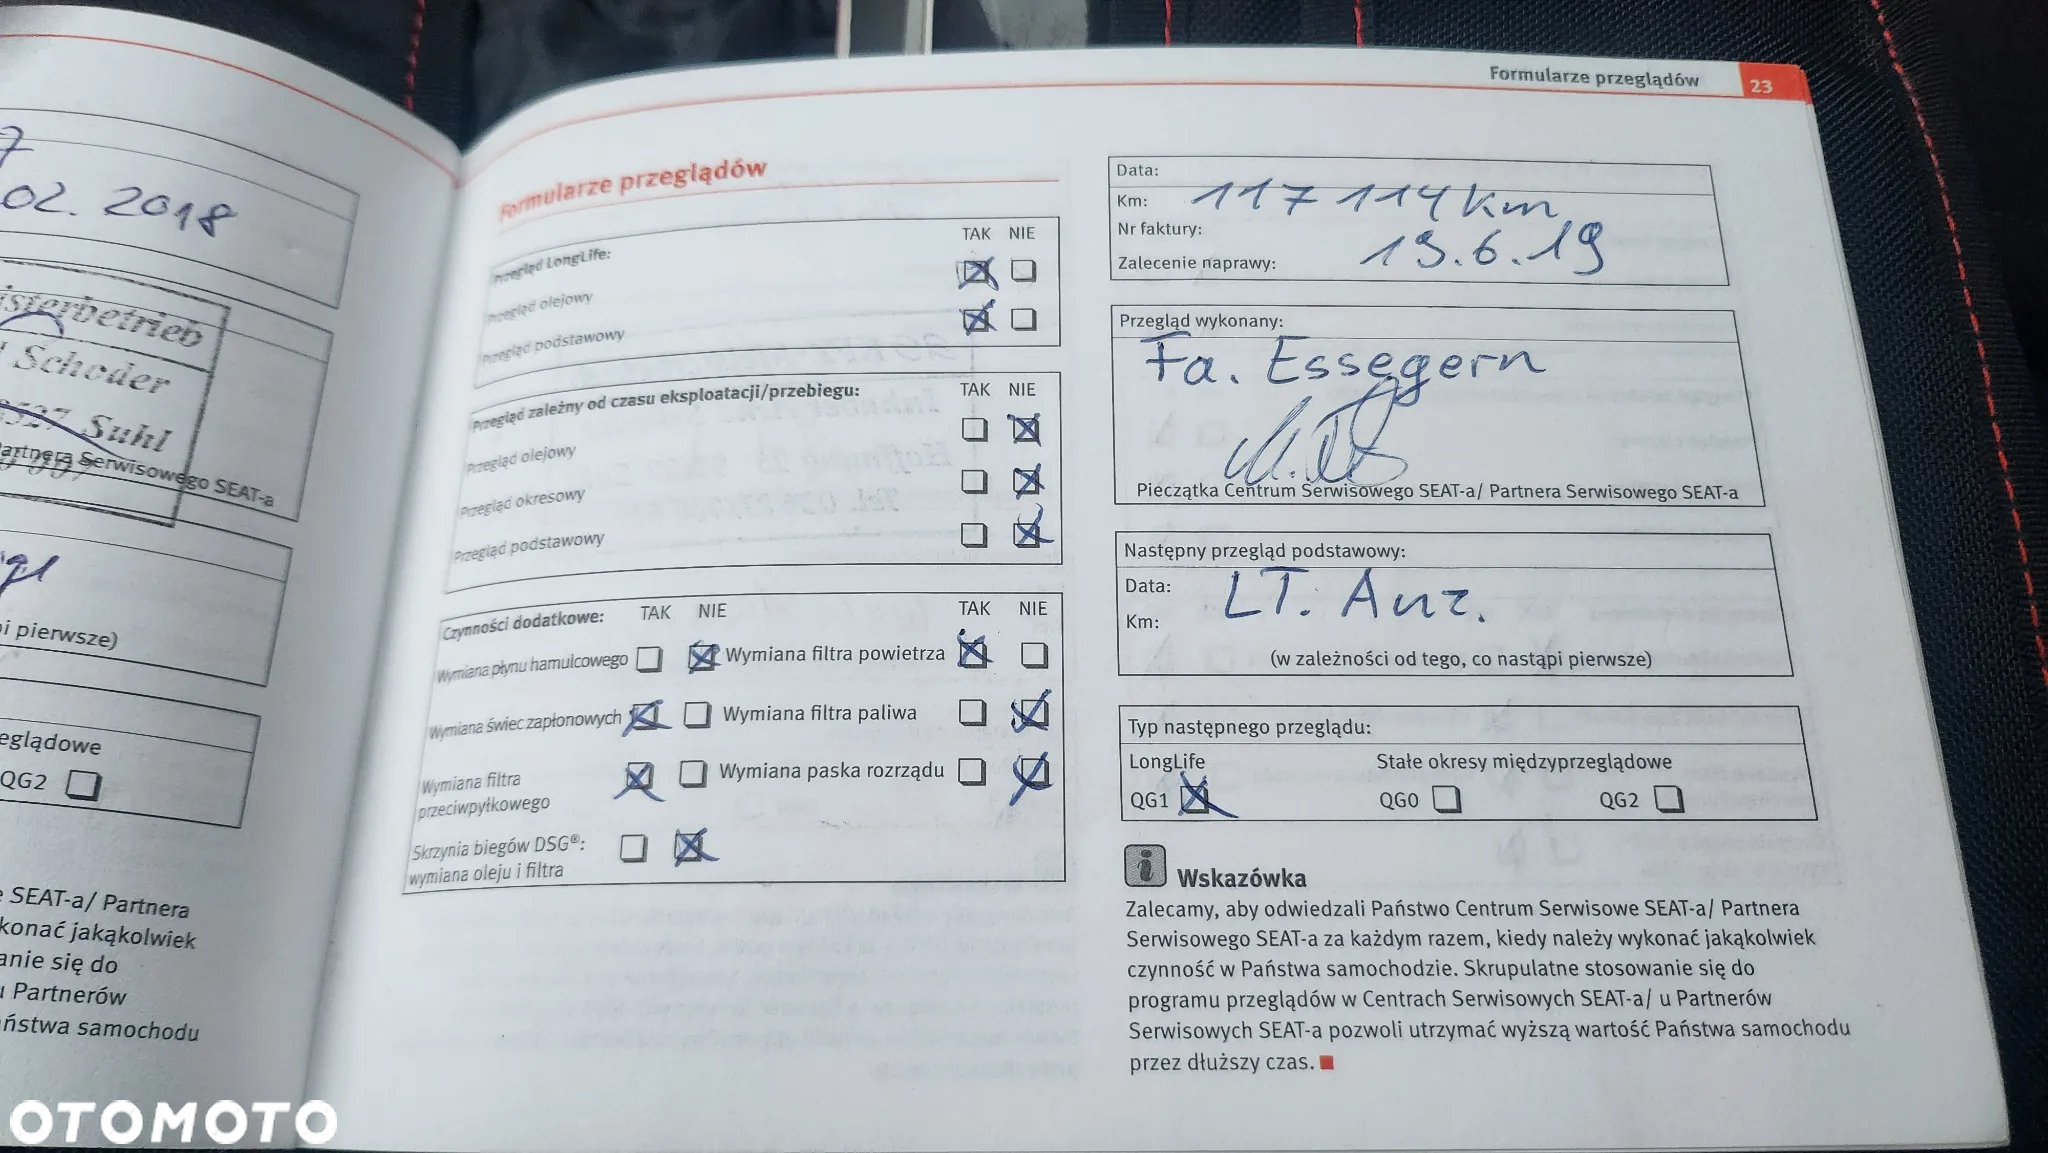 7
02. 2018
isterbetrieb
Schoder
Suhl
Partnera Serwisowego SEAT-a
i pierwsze)
eglądowe
QG2
SEAT-a/ Partnera
konać jakąkolwiek
anie się do
u Partnerów
aństwa samochodu
Formularze przeglądów 23
Formularze przeglądów
Przegląd LongLife: TAK NIE
Przegląd olejowy
Przegląd podstawowy
Przegląd zależny od czasu eksploatacji/przebiegu: TAK NIE
Przegląd olejowy
Przegląd okresowy
Przegląd podstawowy
Czynności dodatkowe: TAK NIE TAK NIE
Wymiana płynu hamulcowego Wymiana filtra powietrza
Wymiana świec zapłonowych Wymiana filtra paliwa
Wymiana filtra
przeciwpyłkowego Wymiana paska rozrządu
Skrzynia biegów DSG®:
wymiana oleju i filtra
Data:
Km: 117 114 km
Nr faktury:
Zalecenie naprawy: 19.6.19
Przegląd wykonany:
Fa. Essegern
Pieczątka Centrum Serwisowego SEAT-a/ Partnera Serwisowego SEAT-a
Następny przegląd podstawowy:
Data: LT. Anz.
Km:
(w zależności od tego, co nastąpi pierwsze)
Typ następnego przeglądu:
LongLife Stałe okresy międzyprzeglądowe
QG1 QG0 QG2
Wskazówka
Zalecamy, aby odwiedzali Państwo Centrum Serwisowe SEAT-a/ Partnera
Serwisowego SEAT-a za każdym razem, kiedy należy wykonać jakąkolwiek
czynność w Państwa samochodzie. Skrupulatne stosowanie się do
programu przeglądów w Centrach Serwisowych SEAT-a/ u Partnerów
Serwisowych SEAT-a pozwoli utrzymać wyższą wartość Państwa samochodu
przez dłuższy czas.
OTOMOTO